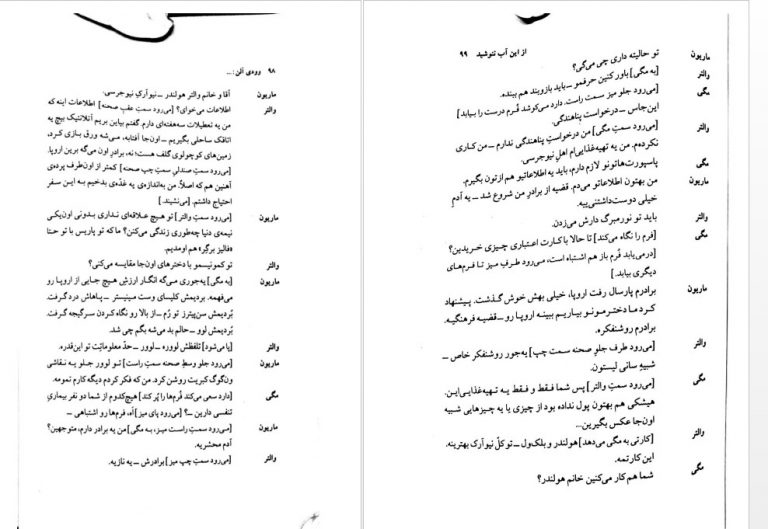 ۹۸ وودی آلن: ...
ماریون آقا و خانم والتر هولندر ـ نیوآرکِ نیوجرسی.
والتر اطلاعات می‌خوای؟ [می‌رود سمتِ عقبِ صحنه] اطلاعات اینه که
من یه تعطیلات سه‌هفته‌ای دارم. گفتم بیاین بریم آتلانتیک بیچ یه
اتاقک ساحلی بگیریم ـ اون‌جا آفتابه، می‌شه ورق بازی کرد،
زمین‌های کوچولوی گلف هست؛ نه، برادرِ اون می‌گه برین اروپا.
[می‌رود سمتِ صندلیِ سمتِ چپ صحنه] کمتر از اون‌طرف پرده‌ی
آهنین هم که اصلاً. من به‌اندازه‌ی یه غدّه‌ی بدخیم به این سفر
احتیاج داشتم. [می‌نشیند.]
ماریون [می‌رود سمتِ والتر] تو هیچ علاقه‌ای نداری بدونی اون‌یکی
نیمه‌ی دنیا چه‌طوری زندگی می‌کنن؟ ما که تو پاریس با تور حتا
«فالیز برگِر» هم اومدیم.
والتر تو کمونیسمو با دخترهای اون‌جا مقایسه می‌کنی؟
ماریون [به مگی] یه‌جوری می‌گه انگار ارزشِ هیچ جایی از اروپا رو
می‌فهمه. بردیمش کلیسای وست مینیستر ـ پاهاش درد گرفت.
بُردیمش سن‌پیترز تو رُم ـ از بالا رو نگاه کردن سرگیجه گرفت.
بُردیمش لوور ـ حالم بد می‌شه بگم چی شد.
والتر [پا می‌شود] تلفظش لووره ـ لوور ـ حدّ معلوماتت تو این‌قدره.
ماریون [می‌رود جلو وسطِ صحنه سمتِ راست] تو لوور جلو یه نقاشی
ون‌گوگ کبریت روشن کرد. من که فکر کردم دیگه کارم تمومه.
مگی [دارد سعی می‌کند فُرم‌ها را پُر کند] هیچ‌کدوم از شما دو نفر بیماریِ
تنفسی دارین ـ؟ [می‌رود پای میز] اُه، فرم‌ها رو اشتباهی ـ
ماریون [می‌رود سمتِ راست میز، به مگی] من یه برادر دارم، متوجهین؟
آدم محشریه.
والتر [می‌رود سمتِ چپِ میز] برادرش ـ یه نازیه.
از این آب ننوشید ۹۹
ماریون تو حالیته داری چی می‌گی؟
والتر [به مگی] باور کنین حرفمو ـ باید بازوبند هم ببنده.
مگی [می‌رود جلو میز سمتِ راست. دارد می‌کوشد فُرم درست را بیابد]
این‌جاس ـ درخواستِ پناهندگی.
والتر [می‌رود سمتِ مگی] من درخواستِ پناهندگی ندارم ـ من کاری
نکرده‌م. من یه تهیه‌غذایی‌ام اهلِ نیوجرسی.
مگی پاسپورت‌هاتونو لازم دارم، باید یه اطلاعاتیو هم ازتون بگیرم.
ماریون من بهتون اطلاعاتو می‌دم. قضیه از برادرِ من شروع شد ـ یه آدمِ
خیلی دوست‌داشتنی‌یه.
والتر باید تو نورمبرگ دارش می‌زدن.
مگی [فرم را نگاه می‌کند] تا حالا با کارت اعتباری چیزی خریدین؟
[درمی‌یابد فُرم باز هم اشتباه است، می‌رود طرفِ میز تا فرم‌های
دیگری بیابد.]
ماریون برادرم پارسال رفت اروپا، خیلی بهش خوش گذشت. پیشنهاد
کرد ما دخترمونو بیاریم ببینه اروپا رو ـ قضیه فرهنگیه.
برادرم روشنفکره.
والتر [می‌رود طرف جلوِ صحنه سمت چپ] یه‌جور روشنفکر خاص ـ
شبیهِ سانی لیستون.
مگی [می‌رود سمتِ والتر] پس شما فقط و فقط یه تهیه‌غذایی‌این.
هیشکی هم بهتون پول نداده بود از چیزی یا یه چیزهایی شبیه
اون‌جا عکس بگیرین...
والتر [کارتی به مگی می‌دهد] هولندر و بلک‌ول ـ تو کلّ نیوآرک بهترینه.
این کارتمه.
مگی شما هم کار می‌کنین خانم هولندر؟